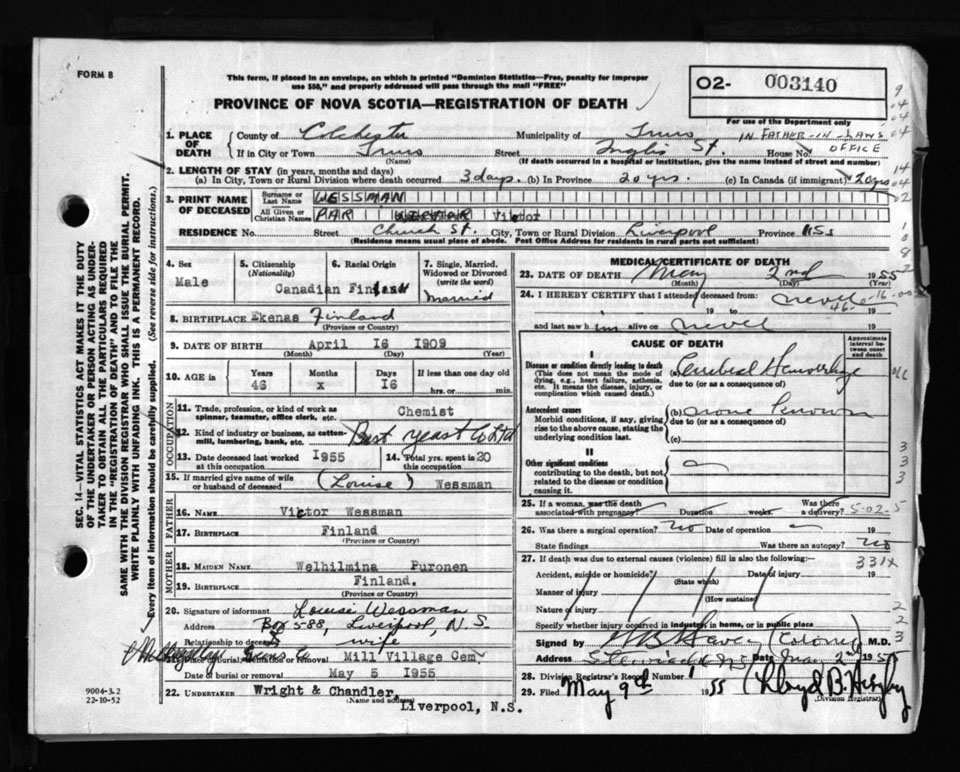 FORM 8
This form, if placed in an envelope, on which is printed "Dominion Statistics—Free, penalty for improper
use $50," and properly addressed will pass through the mail "FREE"
PROVINCE OF NOVA SCOTIA—REGISTRATION OF DEATH
02- 003140
For use of the Department only
1. PLACE OF DEATH County of Colchester Municipality of Truro IN FATHER-IN-LAWS
If in City or Town Truro Street Inglis St. House No. OFFICE
(Name) (If death occurred in a hospital or institution, give the name instead of street and number)
2. LENGTH OF STAY (in years, months and days)
(a) In City, Town or Rural Division where death occurred 3 days. (b) In Province 20 yrs. (c) In Canada (if immigrant) 20 yrs
3. PRINT NAME OF DECEASED Surname or Last Name WESSMAN
All Given or Christian Names PAR Victor
RESIDENCE No. Street Church St. City, Town or Rural Division Liverpool Province N.S.
(Residence means usual place of abode. Post Office Address for residents in rural parts not sufficient)
4. Sex Male
5. Citizenship (Nationality) Canadian
6. Racial Origin
7. Single, Married, Widowed or Divorced (write the word) Married
8. BIRTHPLACE Ekenas Finland
(Province or Country)
9. DATE OF BIRTH April 16 1909
(Month) (Day) (Year)
10. AGE in Years 46 Months x Days 16 If less than one day old
hrs. or min.
OCCUPATION
11. Trade, profession, or kind of work as spinner, teamster, office clerk, etc. Chemist
12. Kind of industry or business, as cotton-mill, lumbering, bank, etc. Best Yeast Co Ltd
13. Date deceased last worked at this occupation 1955 14. Total yrs. spent in this occupation 20
15. If married give name of wife or husband of deceased (Louise) Wessman
FATHER
16. NAME Victor Wessman
17. BIRTHPLACE Finland
(Province or Country)
MOTHER
18. MAIDEN NAME Welhilmina Puronen
19. BIRTHPLACE Finland.
(Province or Country)
20. Signature of informant Louise Wessman
Address Box 588, Liverpool, N.S.
Relationship to deceased wife
Place of burial, cremation or removal Mill Village Cem.
Date of burial or removal May 5 1955
22. UNDERTAKER Wright & Chandler,
(Name and address)
Liverpool, N.S.
9004-3.2
22-10-52
MEDICAL CERTIFICATE OF DEATH
23. DATE OF DEATH May 2nd 1955
(Month) (Day) (Year)
24. I HEREBY CERTIFY that I attended deceased from never
19 to 19
and last saw him alive on never 19
CAUSE OF DEATH
Approximate interval between onset and death
I
Disease or condition directly leading to death
(This does not mean the mode of dying, e.g., heart failure, asthenia, etc. It means the disease, injury, or complication which caused death.)
Cerebral Hemorrhage
due to (or as a consequence of)
Antecedent causes
Morbid conditions, if any, giving rise to the above cause, stating the underlying condition last.
(b) none known
due to (or as a consequence of)
(c)
II
Other significant conditions
contributing to the death, but not related to the disease or condition causing it.
25. If a woman, was the death associated with pregnancy? Duration weeks Was there a delivery?
26. Was there a surgical operation? no Date of operation 19
State findings Was there an autopsy? no
27. If death was due to external causes (violence) fill in also the following: 331X
Accident, suicide or homicide? Date of injury 19
(State which)
Manner of injury
(How sustained)
Nature of injury
Specify whether injury occurred in industry, in home, or in public place
Signed by (Coroner) M.D.
Address Stewiacke N.S. Date May 2nd 1955
28. Division Registrar's Record Number
29. Filed May 9th 1955
(Division Registrar)
SEC. 14—VITAL STATISTICS ACT MAKES IT THE DUTY
OF THE UNDERTAKER OR PERSON ACTING AS UNDER-
TAKER TO OBTAIN ALL THE PARTICULARS REQUIRED
IN THE "REGISTRATION OF DEATH" AND TO FILE THE
SAME WITH THE DIVISION REGISTRAR WHO SHALL ISSUE THE BURIAL PERMIT.
WRITE PLAINLY WITH UNFADING INK. THIS IS A PERMANENT RECORD.
Every item of information should be carefully supplied. (See reverse side for instructions.)